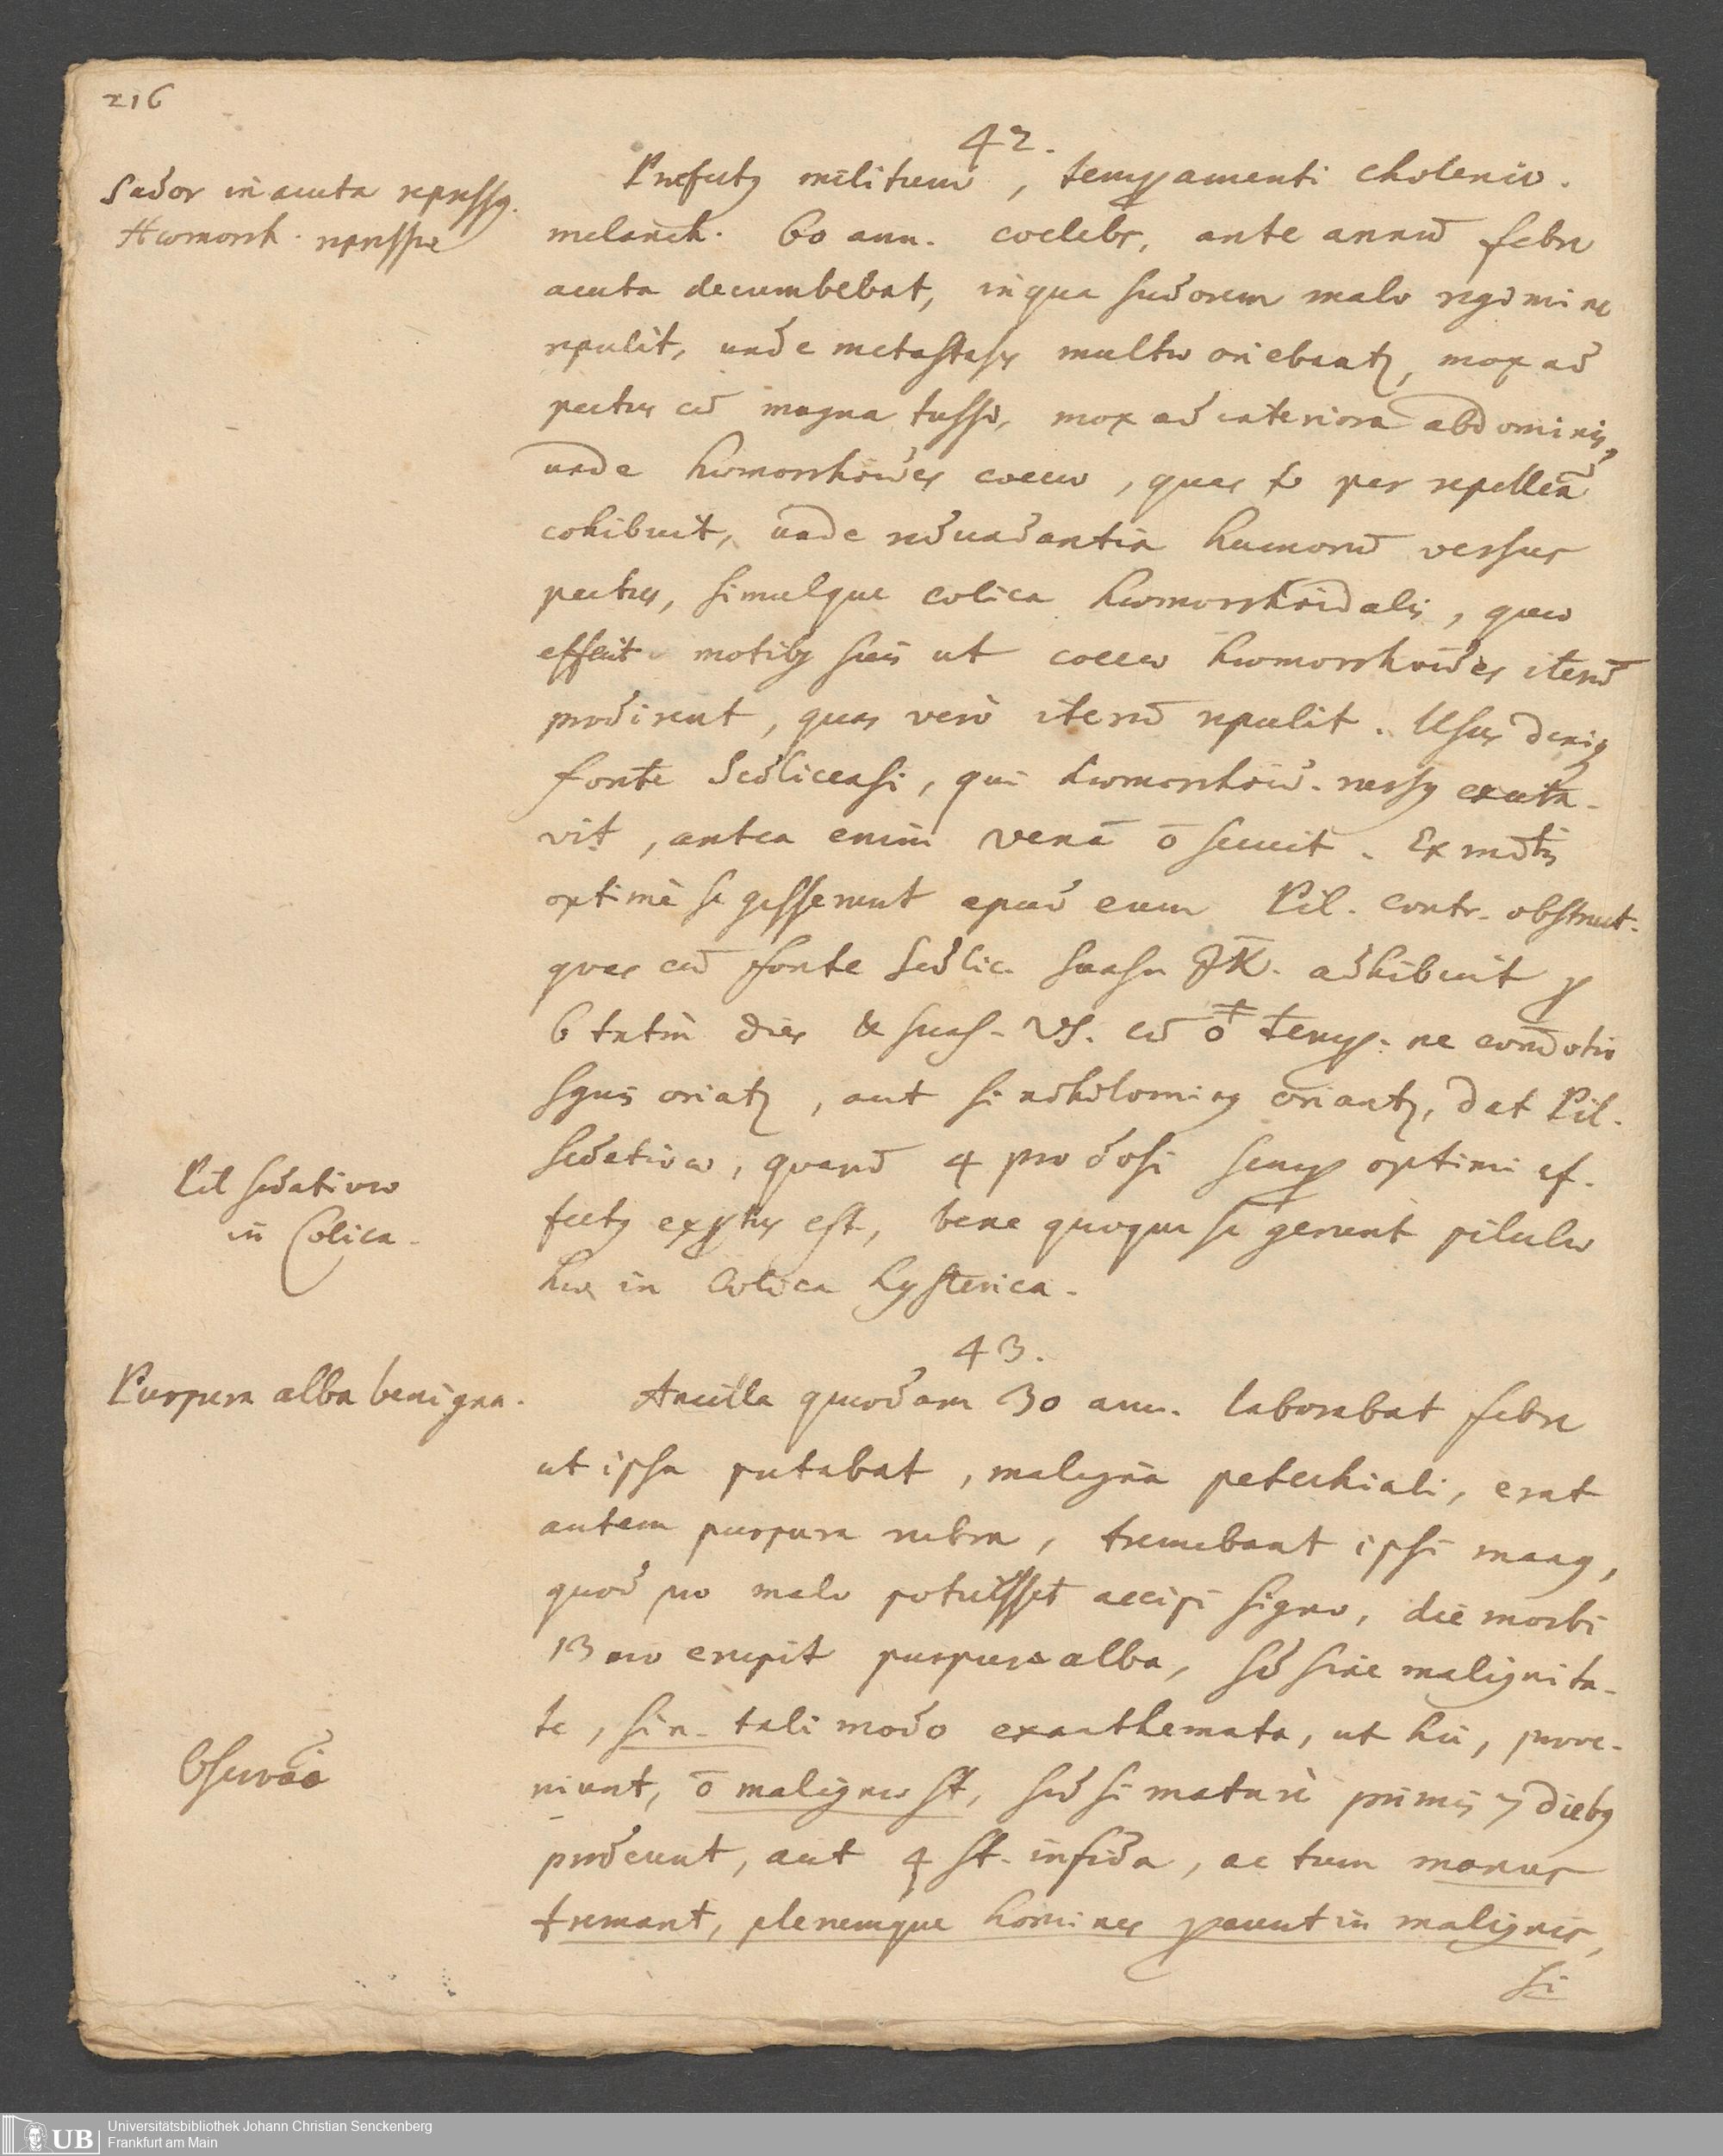 216
42.
Sudor in acuta repressus.
Hæmorrh. repressæ
Præfectus militum, temperamenti choleric.
melanch. 60 ann. coelebs, ante annū febre
acuta decumbebat, in qua sudorem malo regimine
repulit, unde metastases multæ oriebantur, mox ad
pectus cū magna tussi, mox ad interiora abdominis,
unde hæmorrhoides coecæ, quas per repellentia
cohibuit, unde redundantia humorū versus
pectus, simulque colica hæmorrhoidalis, quæ
effecit motibus suis ut coecæ hæmorrhoides iterū
prodirent, quas verò iterū repulit. Usus deniq
fonte Sedlicensi, qui hæmorrhoid. rursus excita-
vit, antea enim venā ō secuit. Ex mdtis
optimè se gesserunt apud eum Pil. contr. obstruct.
quas cū fonte Sedlic. suasu adhibuit per
6 tatim dies & suas. VS. cū temp. ne com̄otio
sgnis oriatur, aut si nihilominus oriantur, det Pil.
Pil sedativæ
in Colica.
sedativæ, quarū 4 pro dosi semper optimi ef-
fectus expertus est, bene quoque se gerunt pilulæ
hæ in Colica hysterica.
43.
Purpura alba benigna.
Ancilla quædam 30 ann. laborabat febre
ut ipsa putabat, maligna petechiali, erat
autem purpura rubra, tremebant ipsi manus,
quod pro malo potuisset accipi signo, die morbi
13 erupit purpura alba, sed sine malignita-
te, tali modo exanthemata, ut hic, prove-
Observāō
niunt, ō maligna st, sed si maturè primis 7 diebus
prodeunt, aut 4 st. infida, ac tum manus
tremant, plerumque homines pereunt in malignis,
si
Universitätsbibliothek Johann Christian Senckenberg
Frankfurt am Main
UB